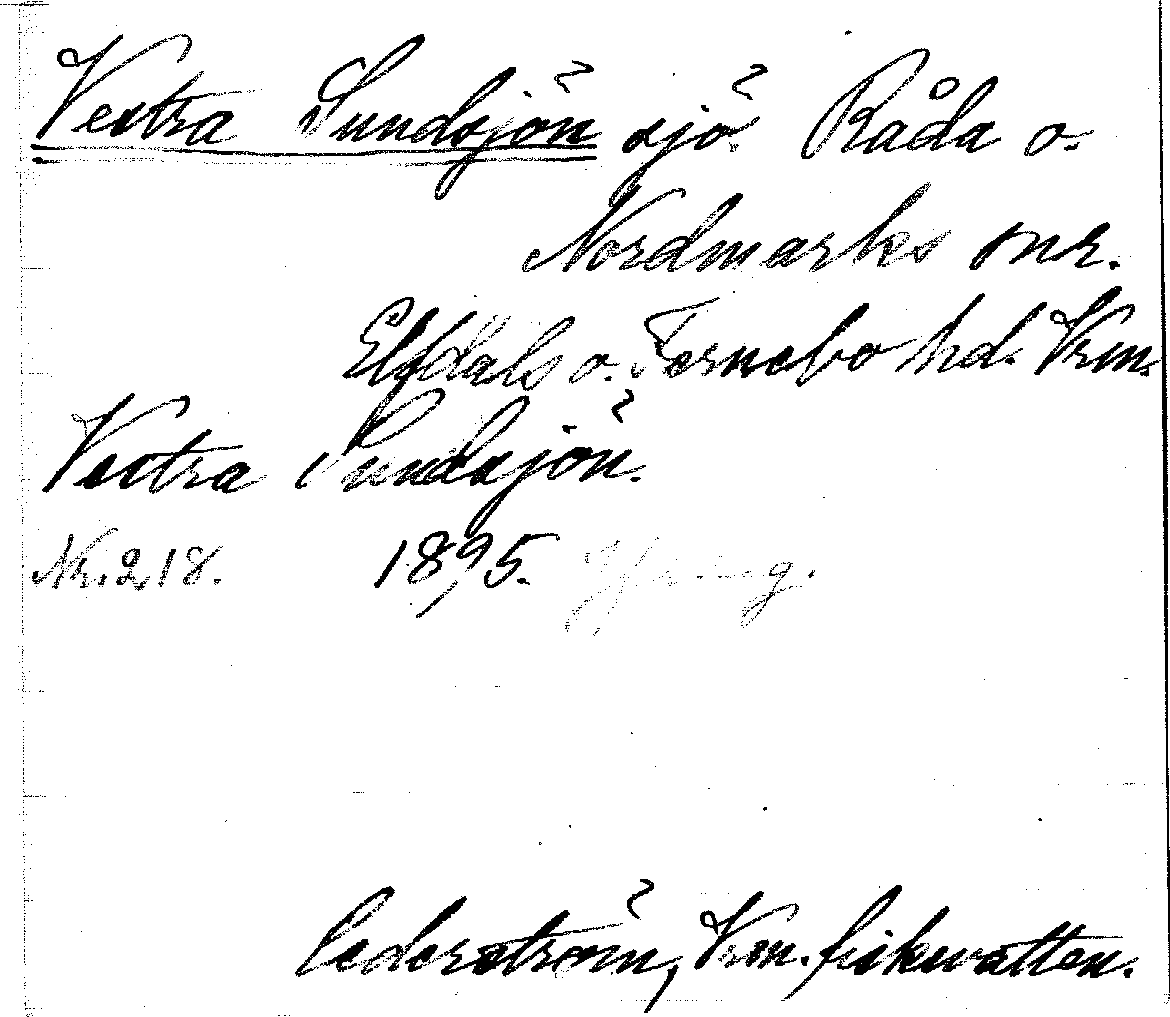 Vestra Sundsjön sjö. Råda o.
Nordmarks snr.
Elfdals o. Fernebo hd. Vrm.
Vestra Sundsjön.
Nr. 218. 1895.
Cederström, Vrm. fiskvatten.